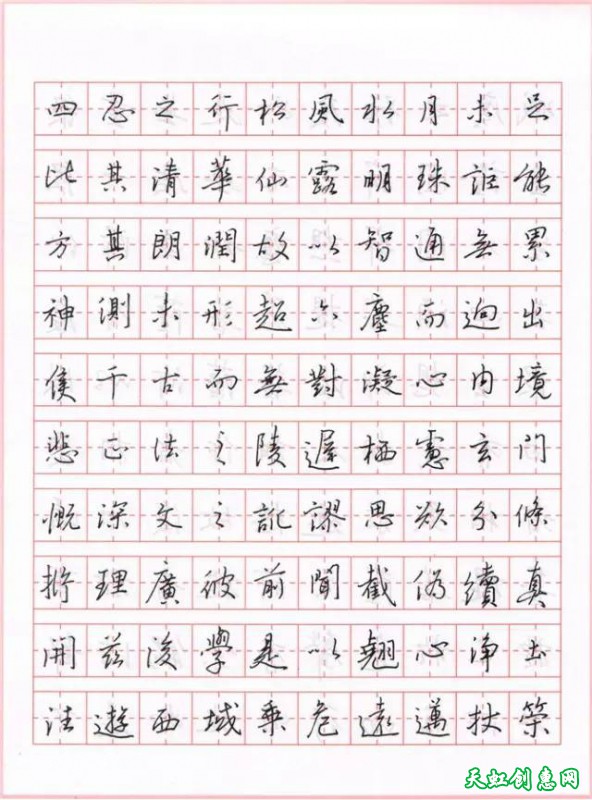 四忍之行松風水月未足
比其清華仙露明珠詎能
方其朗潤故以智通無累
神測未形超六塵而迥出
隻千古而無對凝心内境
悲正法之陵遲栖慮玄門
慨深文之訛謬思欲分條
析理廣彼前聞截偽續真
開茲後學是以翹心淨土
往遊西域乘危遠邁杖策
天虹创意网